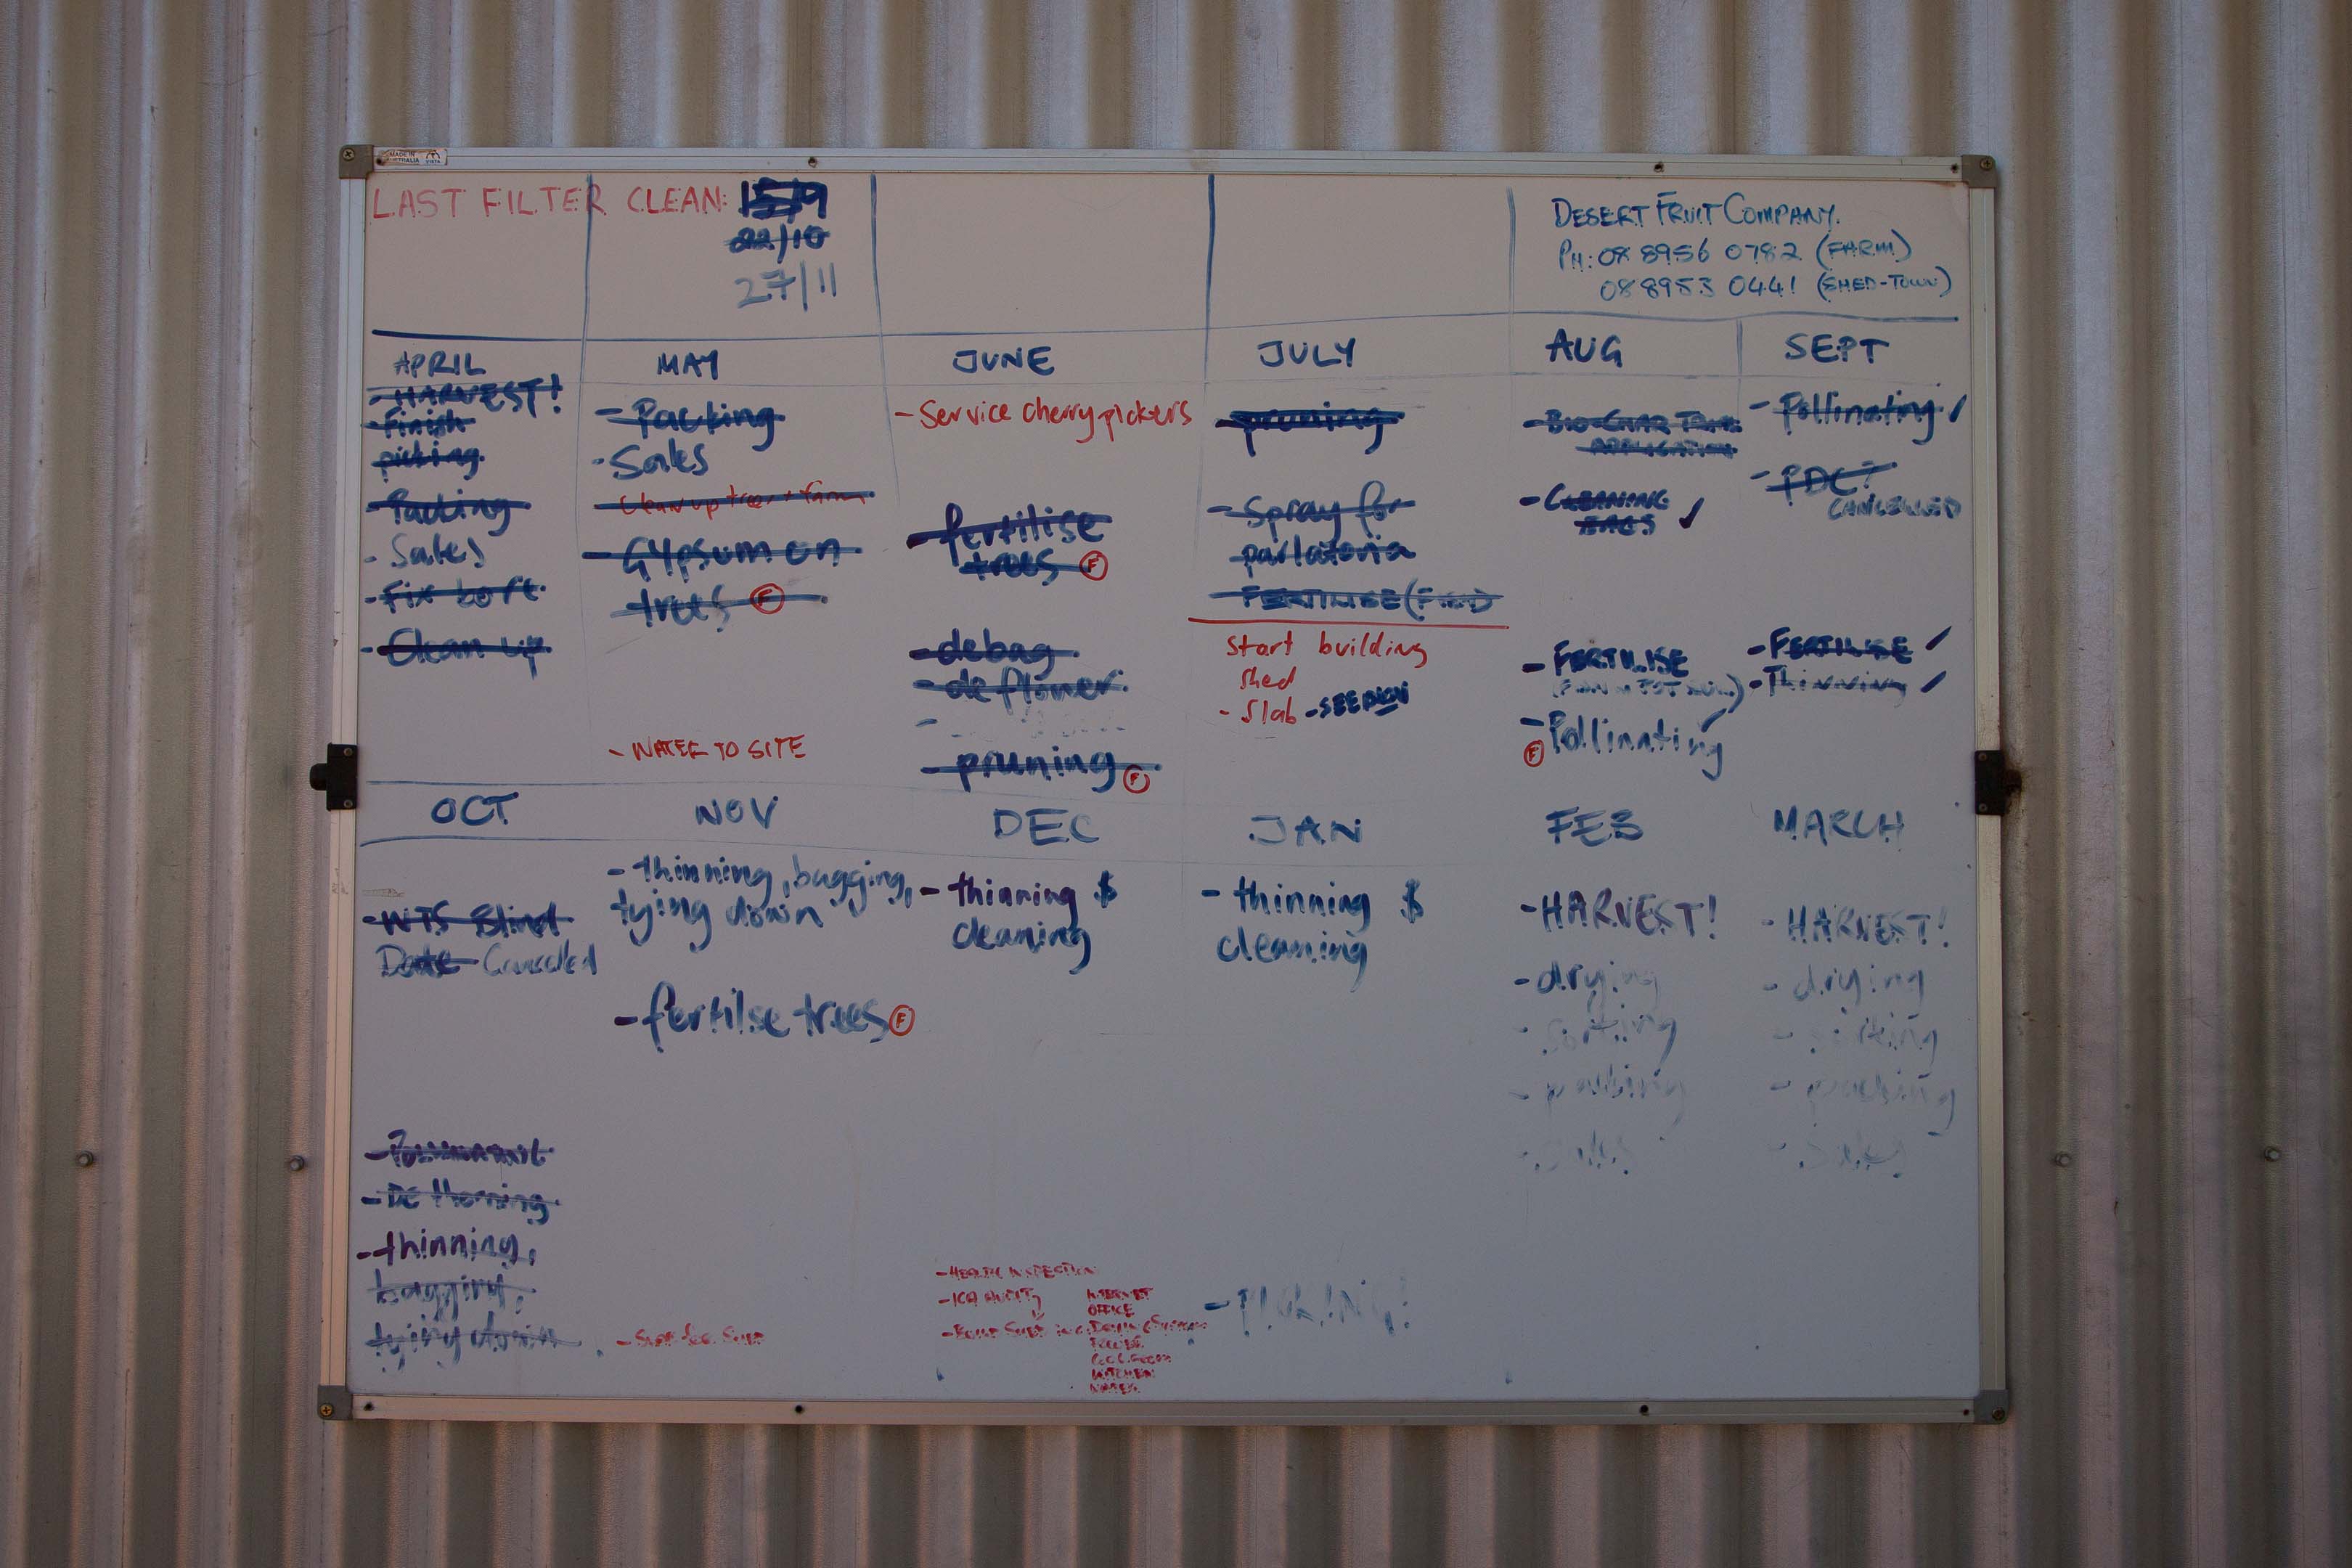 MADE IN
AUSTRALIA VISTA
LAST FILTER CLEAN: 15/9
22/10
27/11
DESERT FRUIT COMPANY.
PH: 08 8956 0782 (FARM)
08 8953 0441 (SHED-TOWN)
APRIL
- HARVEST!
- Finish
picking
- Packing
- Sales
- Fix
- Clean up
MAY
- Packing
- Sales
- Clean up trees + farm
- Gypsum on
trees F
- WATER TO SITE
JUNE
- Service cherry pickers
- fertilise
trees F
- debag
- deflower
-
- pruning F
JULY
- pruning
- Spray for
parlatoria
- FERTILISE
Start building
shed
- Slab - SEE
AUG
- BIO-CHAR
APPLICATION
- CLEANING
BAGS ✓
- FERTILISE
- Pollinating
F
SEPT
- Pollinating ✓
- PDC?
CANCELLED
- FERTILISE ✓
- Thinning ✓
OCT
- WTS Blind
Date Cancelled
-
- DE
- thinning,
bagging,
tying down
NOV
- thinning, bagging,
tying down
- fertilse trees F
-
DEC
- thinning $
cleaning
- HEALTH INSPECTION
- ICA AUDIT
INTERNET
OFFICE
KITCHEN
JAN
- thinning $
cleaning
- PICKING!
FEB
- HARVEST!
- drying
- sorting
- packing
- Sales
MARCH
- HARVEST!
- drying
- sorting
- packing
- Sales